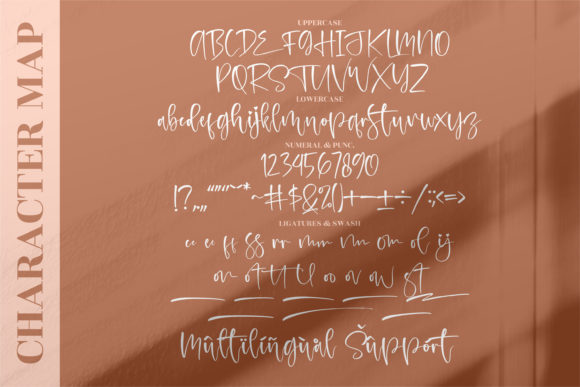 CHARACTER MAP
UPPERCASE
ABCDEFGHIJKLMNO
PQRSTUVWXYZ
LOWERCASE
abcdefghijklmnopqrstuvwxyz
NUMERAL & PUNC.
1234567890
LIGATURES & SWASH
ee ff ss rr mm nn om ol ij
Mûltïlíñgùal Šûppórt